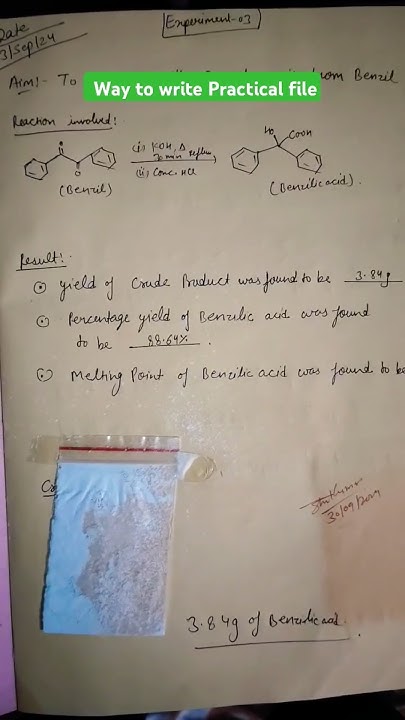 Date
3/Sep/24
Experiment-03
Aim:- To from Benzil
Way to write Practical file
Reaction involved:-
(i) KOH, Δ
30 min reflux
(ii) Conc. HCl
O
O
(Benzil)
HO COOH
(Benzilic acid).
Result:-
Yield of Crude Product was found to be 3.84g
Percentage yield of Benzilic acid was found
to be 88.64%.
Melting Point of Benzilic acid was found to be
30/09/2024
3.84g of Benzilic acid